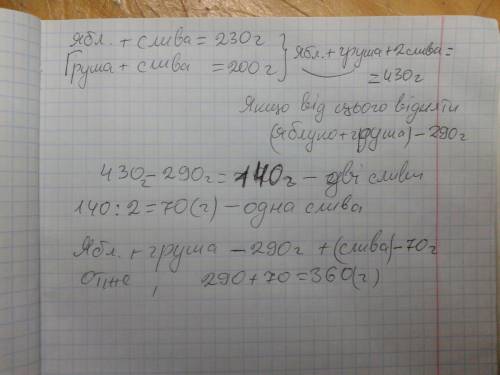 Ябл. + слива = 230г
Груша + слива = 200г
Ябл. + груша + 2 слива =
= 430г
Якщо від цього відняти
(яблуко + груша) - 290г
430г - 290г = 140г - дві сливи
140 : 2 = 70(г) - одна слива
Ябл. + груша - 290г + (слива) - 70г
Отже, 290 + 70 = 360(г)